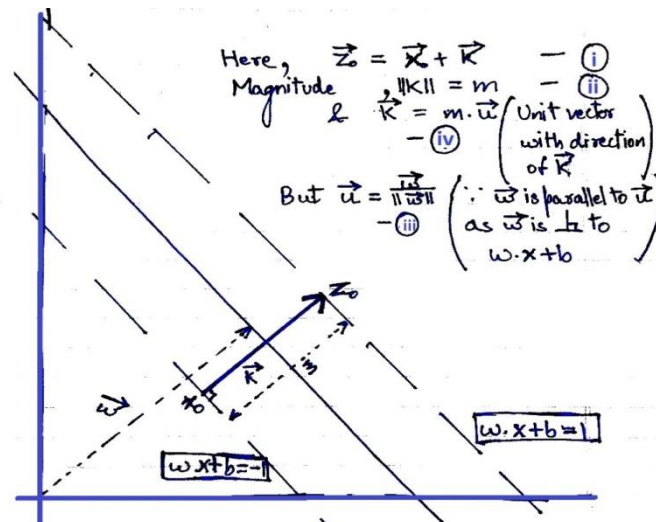 Here, Z₀ = X₀ + K — (i)
Magnitude, ||K|| = m — (ii)
& K = m.u (Unit vector
— (iv) with direction
of K)
But u = w/||w|| (∵ w is parallel to u
— (iii) as w is ⊥r to
w.x+b)
Z₀
K
m
x₀
w
w.x+b=1
w.x+b=-1